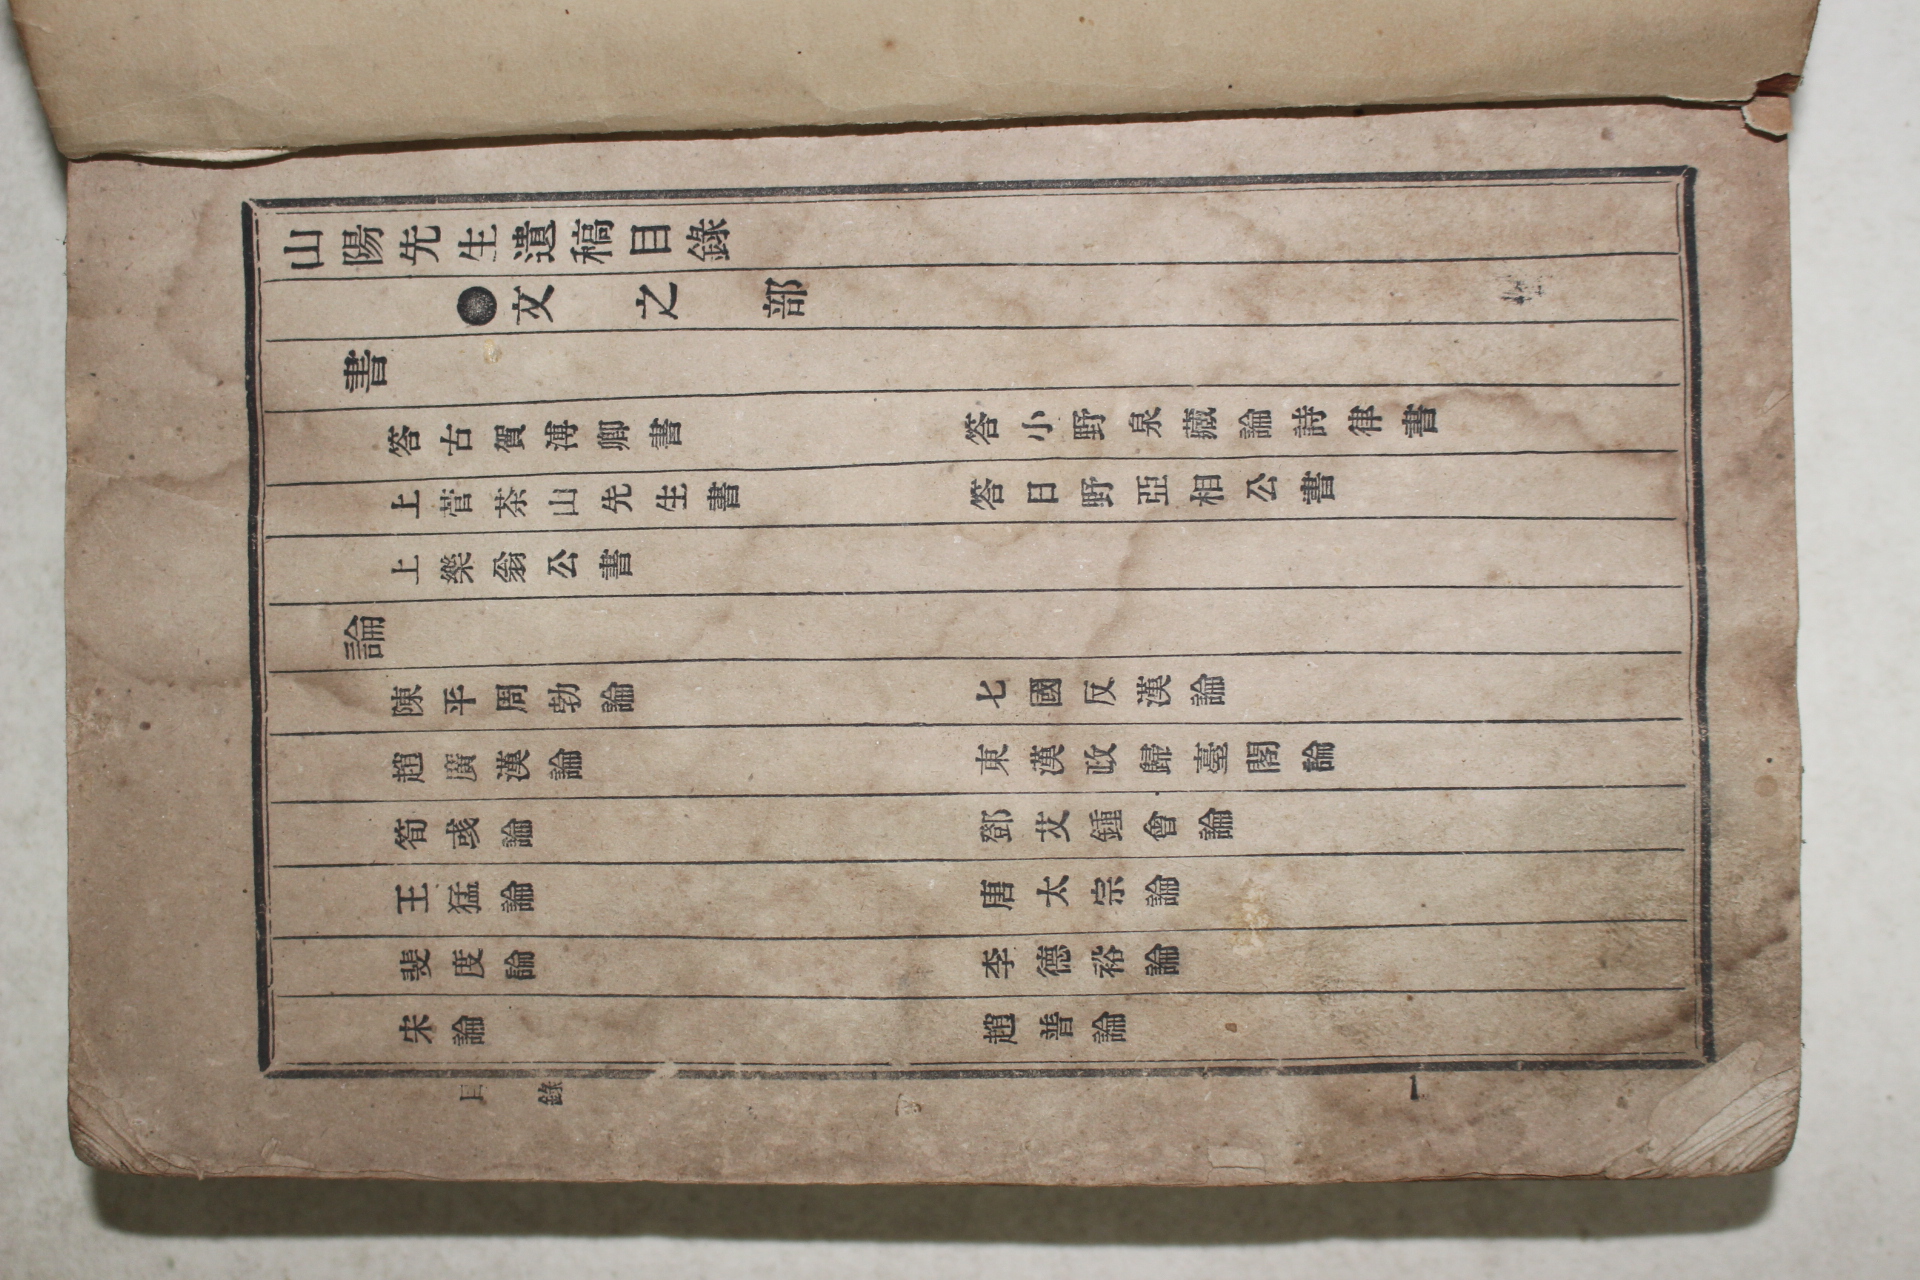 山陽先生遺稿目錄
●文之部
書
答古賀溥卿書　答小野泉藏論詩律書
上菅茶山先生書　答日野亞相公書
上樂翁公書
論
陳平周勃論　七國反漢論
趙廣漢論　東漢政歸臺閣論
筍彧論　鄧艾鍾會論
王猛論　唐太宗論
斐度論　李德裕論
宋論　趙普論
目錄　一